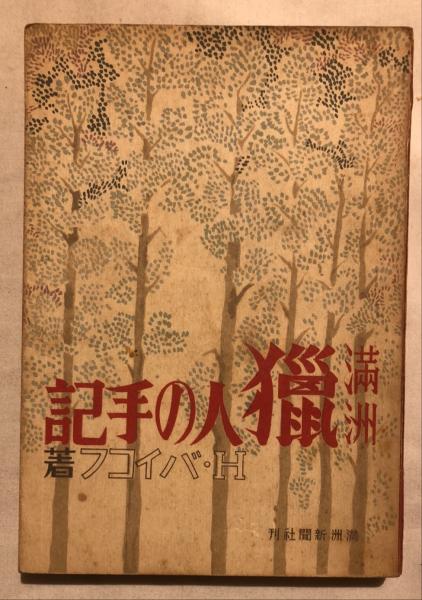 満洲
獵人の手記
H・バイコフ著
満洲新聞社刊